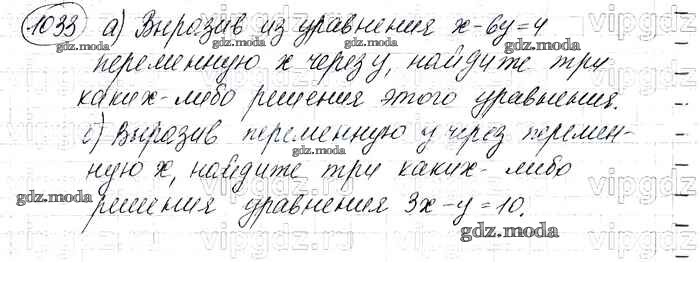 1033 а) Выразив из уравнения x-6y=4
gdz.moda gdz.moda gdz.moda
переменную x через y, найдите три
gdz.moda
каких-либо решения этого уравнения.
б) Выразив переменную y через перемен-
gdz.moda
ную x, найдите три каких-либо
gdz.moda
решения уравнения 3x-y=10.
gdz.moda
vipgdz.ru vipgdz.ru